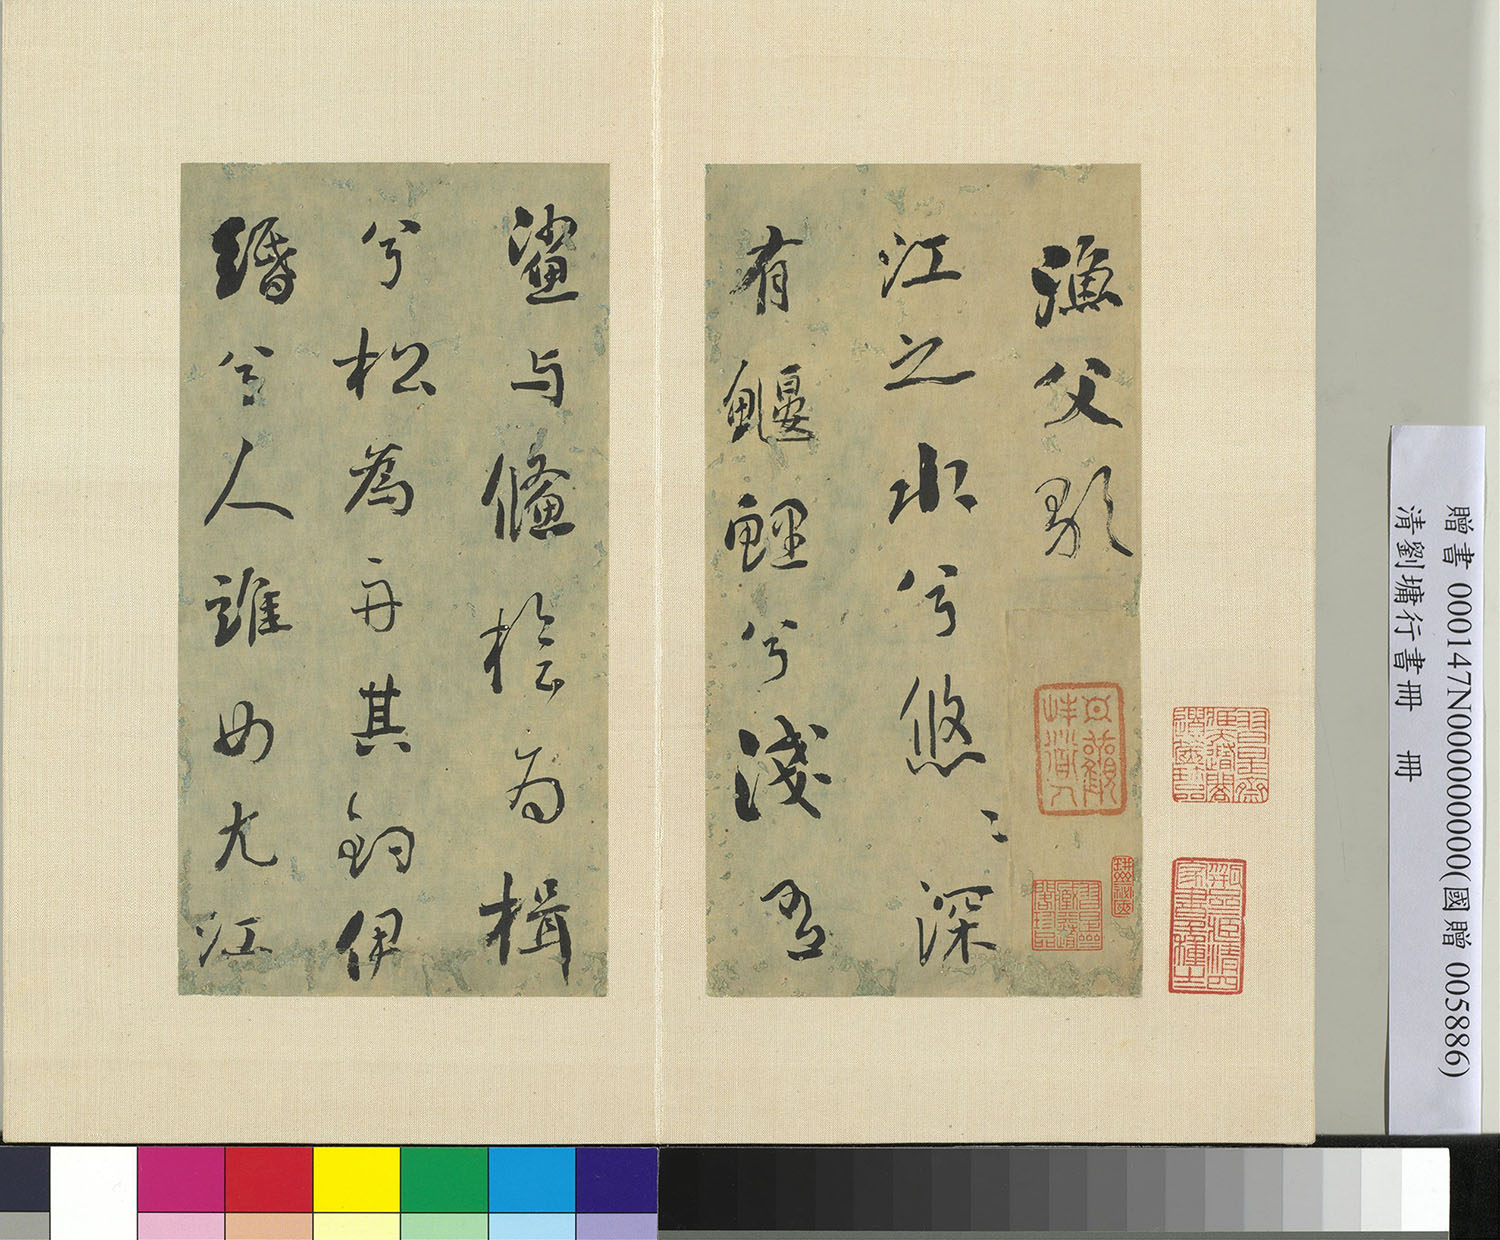 漁父歌
江之水兮悠〻深
有鰋鯉兮淺有
鯊与鯈桧为楫
兮松為舟其釣伊
緡兮人誰如尤江
贈書 000147N000000000(國贈 005886)
清劉墉行書冊 冊